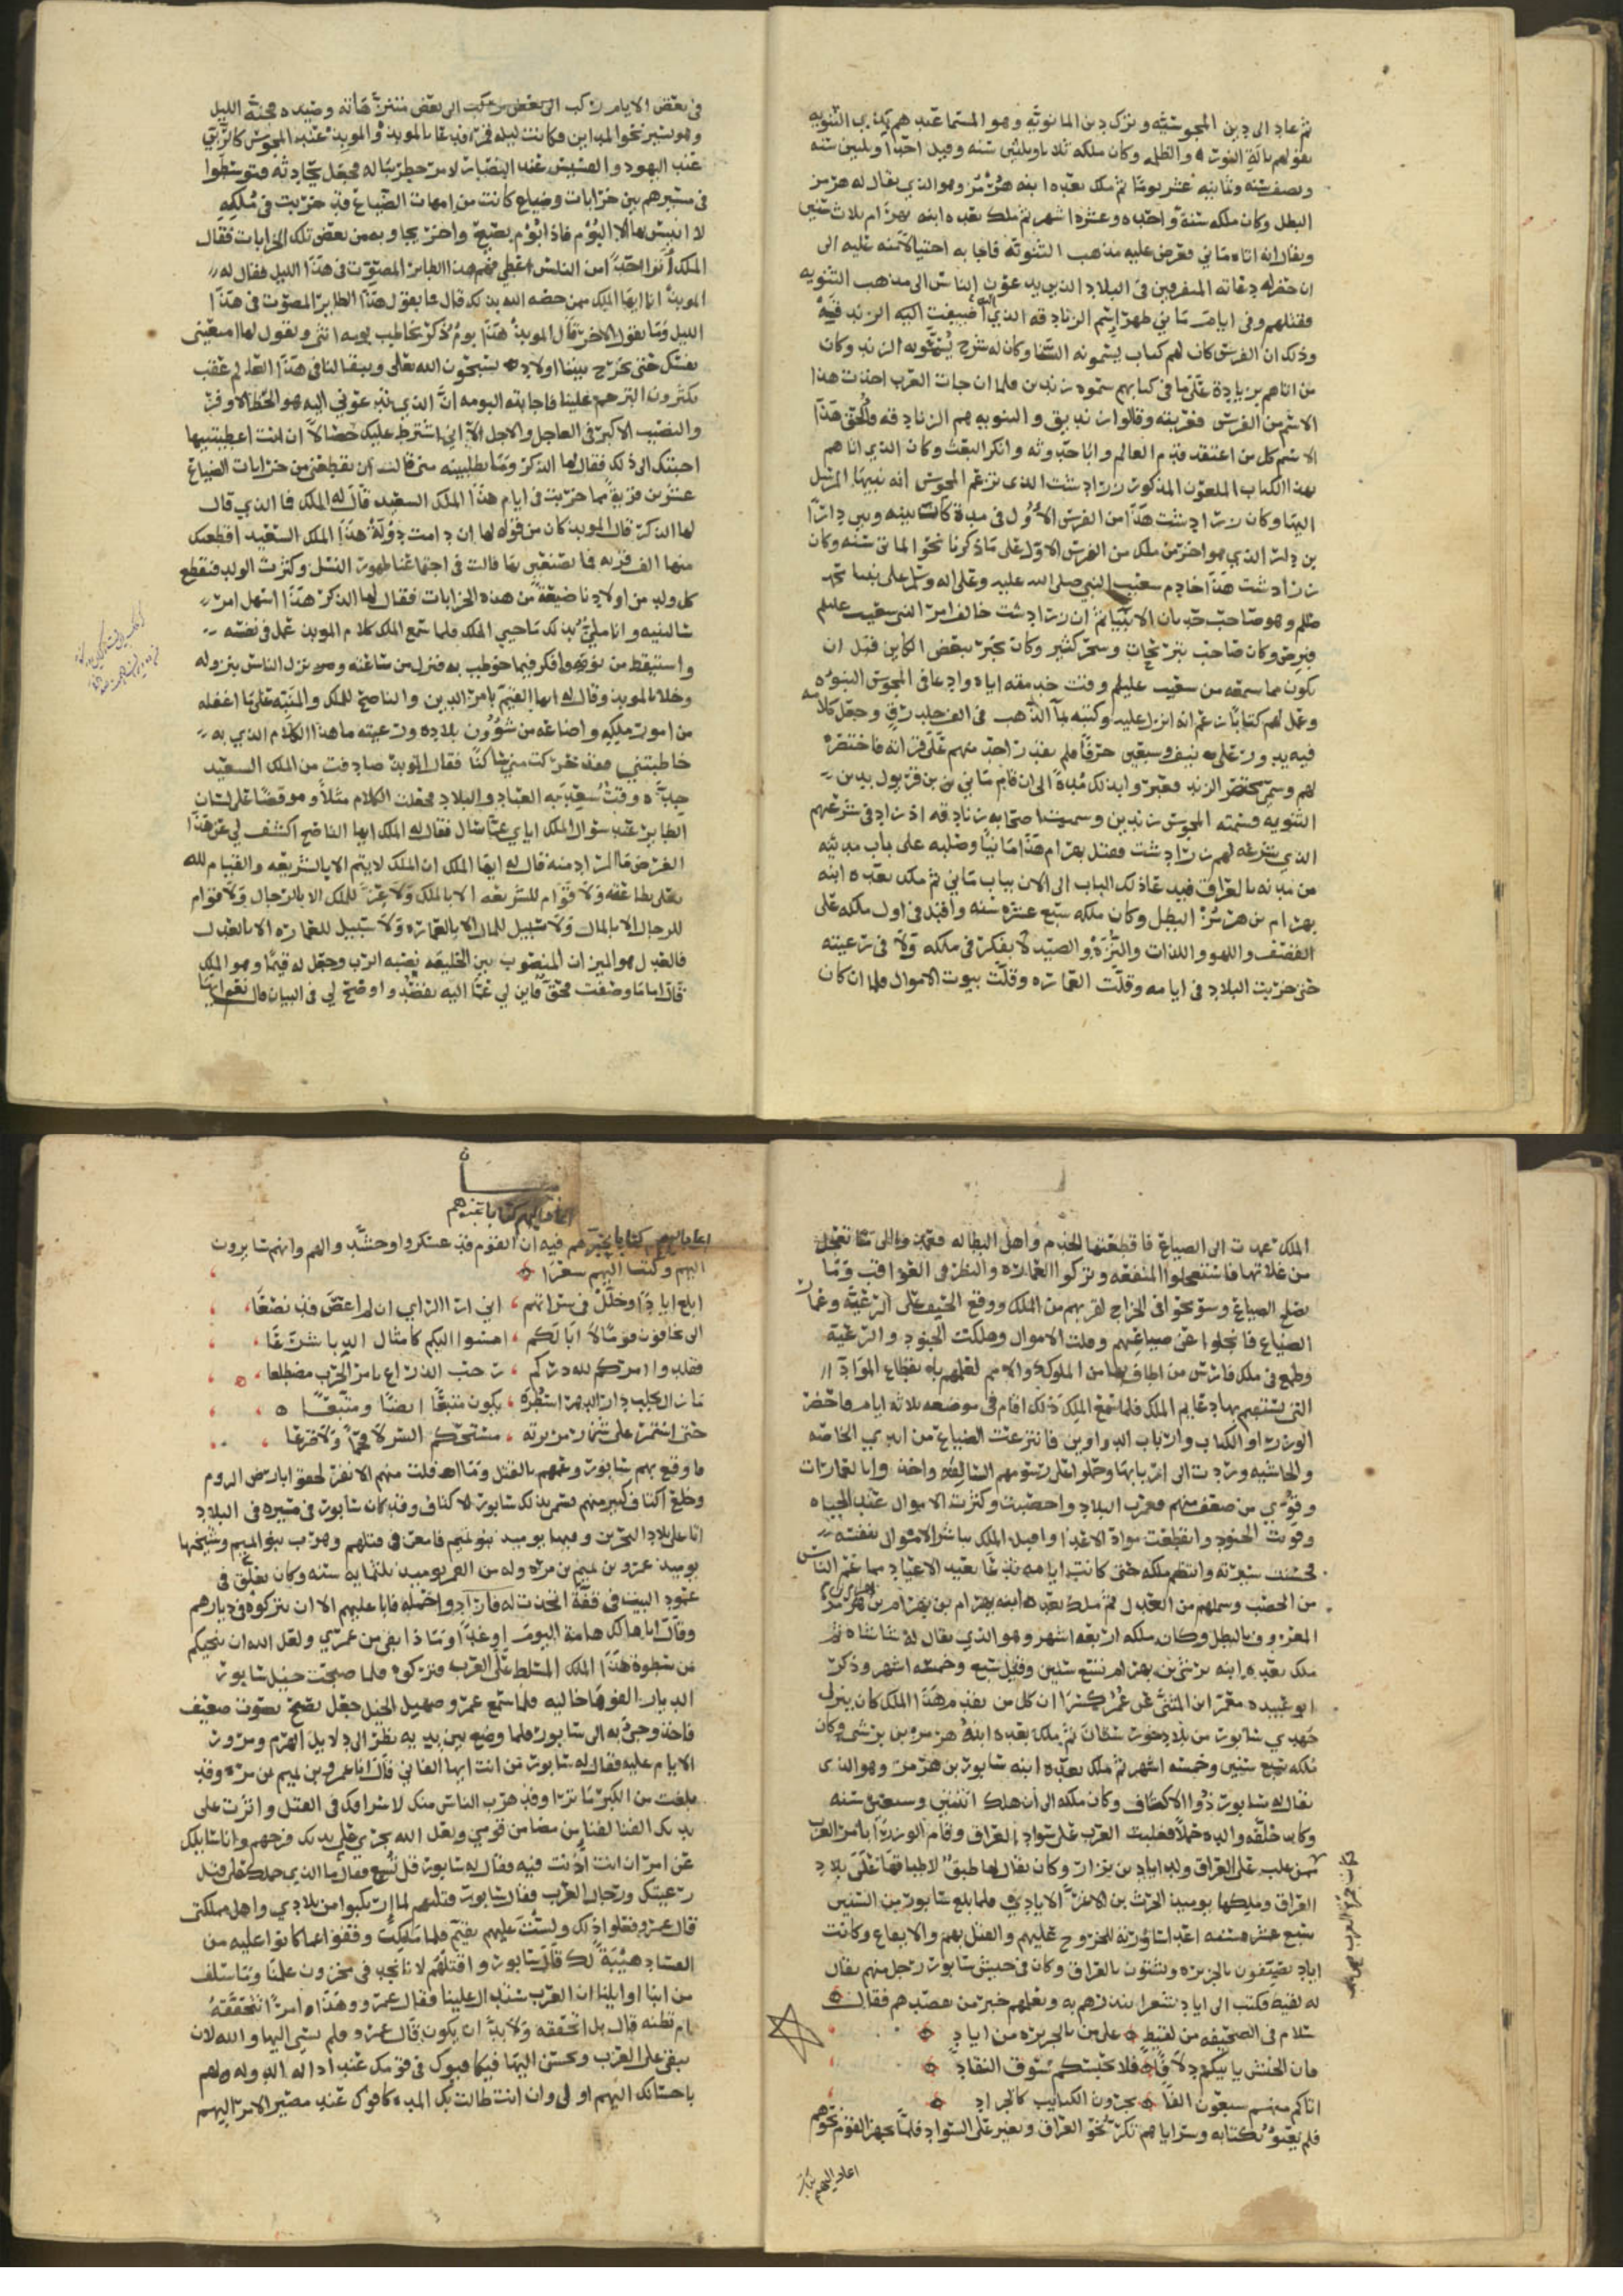 ثم عاد الى دين المجوسيه وترك دين المانويه وهو المسما عندهم بدين الثنويه
بقولهم باله النور والظلمه وكان ملكه ثلاثا وثلثين سنه وقيل احدا وثلثين سنه
ونصف سنه وثمانيه عشر يوما ثم ملك بعده ابنه هرمز وهو الذي يقال له هرمز
البطل وكان ملكه سنة واحده وعشرة اشهر ثم ملك بعده ابنه بهرام ثلاث سنين
ويقال انه اتاه ماني فعرض عليه مذهب الثنويه فاجابه احتيالا منه عليه الى
ان حضر له دعاته المتفرقين في البلاد الذين يدعون الناس الى مذهب الثنويه
فقتلهم وفي ايام ماني ظهر اسم الزنادقه الذي اضيفت اليه الزندقه
وذلك ان الفرس كان لهم كتاب يسمونه البستا وكان له شرح يدعونه الزند وكان
من اتاهم بزيادة على ما في كتابهم سموه زندين فلما ان جات العرب اخذت هذا
الاسم من الفرس فعربته وقالوا زنديق والثنويه هم الزنادقه والحق هذا
الاسم كل من اعتقد قدم العالم وابا حدوثه وانكر البعث وكان الذي اتاهم
بهذا الكتاب الملعون المذكور زرادشت الذي تزعم المجوس انه نبيها المرسل
اليها وكان زرادشت هذا من الفرس الاول في مدة كانت بينه وبين دارا
بن دارا الذي هو اخر من ملك من الفرس الاول على ما ذكرنا نحو المائتي سنه وكان
زرادشت هذا خادم شعيب النبي صلى الله عليه وعلى اله
وهو صاحب ثم ان زرادشت خالف امر النبي شعيب عليلم
فبرص وكان صاحب نيرنجات وسحر كثير وكان يخبر ببعض الكاين قبل ان
يكون مما سمعه من شعيب عليلم وقت خدمته اياه وادعا في المجوس النبوه
وعمل لهم كتابا زعم انه انزل عليه وكتبه بما الذهب في الف جلد رق وجعل كلامه
فيه يدور على نيف وسبعين حرفا فلم يقدر احد منهم على قراته فاختصره
لهم وسمى مختصر الزند فعبروا بذلك مدة الى ان قام ماني بن بدين
الثنويه فسمته المجوس زندين وسميت اصحابه زنادقه اذ زاد في شرعهم
الذي شرعه لهم زرادشت فقتل بهرام هذا مانيا وصلبه على باب مدينه
من مدنه بالعراق فيدعا ذلك الباب الى الان بباب ماني ثم ملك بعده ابنه
بهرام بن هرمز البطل وكان ملكه سبع عشره سنه واقبل في اول ملكه على
القصف واللهو واللذات والنزه والصيد لا يفكر في ملكه ولا في رعيته
حتى خربت البلاد في ايامه وقلت العماره وقلت بيوت الاموال فلما ان كان
في بعض الايام ركب الى بعض متنزهاته وصيده فجنه الليل
وهو يسير نحو المداين وكانت ليله قمر فدعا بالموبذ والموبذ عند المجوس كالربي
عند اليهود والقسيس عند النصارى لامر خطر بباله فجعل يحادثه فتوسطوا
في مسيرهم بين خرابات وضياع كانت من امهات الضياع قد خربت في ملكه
لا انيس بها الا البوم فاذا بوم يصيح واخر يجاوبه من بعض تلك الخرابات فقال
الملك اترا احدا من الناس اعطي فهم هذا الطاير المصوت في هذا الليل فقال له
الموبذ انا ايها الملك ممن خصه الله بذلك قال فما يقول هذا الطاير المصوت في هذا
الليل وما يقول الاخر قال الموبذ هذا بوم ذكر يخاطب بومه انثى ويقول لها امتعيني
نفسك حتى يخرج بيننا اولاد يسبحون الله تعلى ويبقا لنا في هذا العالم عقب
يكثرون الترحم علينا فاجابته البومه ان الذي تدعوني اليه هو الحظ الاوفر
والنصيب الاكبر في العاجل والاجل الا اني اشترط عليك خصالا ان انت اعطيتنيها
اجبتك الى ذلك فقال لها الذكر وما تطلبينه مني قالت ان تقطعني من خرابات الضياع
عشرين قريه مما خربت في ايام هذا الملك السعيد قال له الملك فما الذي قال
لها الذكر قال الموبذ كان من قوله لها ان دامت دولة هذا الملك السعيد اقطعتك
منها الف قريه فما تصنعين بها قالت في اجتماعنا ظهور النسل وكثرة الولد فنقطع
كل ولد من اولادنا ضيعة من هذه الخرابات فقال لها الذكر هذا اسهل امر
سالتنيه وانا ملي بذلك ما حيي الملك فلما سمع الملك كلام الموبذ عمل في نفسه
واستيقظ من نومه وافكر فيما خوطب به فنزل من ساعته ونزل الناس بنزوله
وخلا بالموبذ وقال له ايها القيم بامر الدين والناصح للملك والمنبه على ما اغفله
من امور ملكه واضاعه من شؤون بلاده ورعيته ما هذا الكلام الذي به
خاطبتني فقد حركت مني ساكنا فقال الموبذ صادفت من الملك السعيد
جده وقت سعد به العباد والبلاد فجعلت الكلام مثلا وموقظا على لسان
الطاير عند سؤال الملك اياي عما سال فقال له الملك ايها الناصح اكشف لي عن هذا
الغرض ما المراد منه قال له ايها الملك ان الملك لا يتم الا بالشريعه والقيام لله
تعلى بطاعته ولا قوام للشريعه الا بالملك ولا عز للملك الا بالرجال ولا قوام
للرجال الا بالمال ولا سبيل للمال الا بالعماره ولا سبيل للعماره الا بالعدل
فالعدل هو الميزان المنصوب بين الخليقه نصبه الرب وجعل له قيما وهو الملك
قال اما ما وصفت فحق فابن لي عما اليه تقصد واوضح لي في البيان قال نعم ايها
الملك عمدت الى الضياع فاقطعتها الخدم واهل البطاله فعمدوا الى ما تعجل
من غلاتها فاستعجلوا المنفعه وتركوا العماره والنظر في العواقب وما
يصلح الضياع وسومحوا في الخراج لقربهم من الملك ووقع الحيف على الرعيه وعمار
الضياع فانجلوا عن ضياعهم وقلت الاموال وهلكت الجنود والرعيه
وطمع في ملك فارس من اطاف بها من الملوك والامم لعلمهم بانقطاع المواد
التي تستقيم بها دعايم الملك فلما سمع الملك ذلك اقام في موضعه ثلاثه ايام فاحضر
الوزرا والكتاب وارباب الدواوين فانتزعت الضياع من ايدي الخاصه
والحاشيه وردت الى اربابها وحملوا على رسومهم السالفه واخذوا بالعمارات
وقوي من ضعف منهم فعمرت البلاد واخصبت وكثرت الاموال عند الجباه
وقويت الجنود وانقطعت مواد الاعدا واقبل الملك يباشر الاموال بنفسه
فحسنت سيرته وانتظم ملكه حتى كانت ايامه تدعا بعيد الاعياد مما عم الناس
من الخصب وشملهم من العدل ثم ملك بعده ابنه بهرام بن بهرام بن هرمز
المعروف بالبطل وكان ملكه اربعه اشهر وهو الذي يقال له شاهنشاه ثم
ملك بعده ابنه نرسي بن بهرام تسع سنين وقيل سبع وخمسه اشهر وذكر
ابو عبيده معمر ابن المثنى عن عمر كسرا ان كل من تقدم هذا الملك كان ينزل
جندي سابور من بلاد خوزستان ثم ملك بعده ابنه هرمز بن نرسي وكان
ملكه سبع سنين وخمسه اشهر ثم ملك بعده ابنه سابور بن هرمز وهو الذي
يقال له سابور ذو الاكتاف وكان ملكه الى ان هلك اثنتين وسبعين سنه
وكان خلفه والده حملا فغلبت العرب على سواد العراق وقام الوزرا بامر التدبير
ممن غلب على العراق ولد اياد بن نزار وكان يقال لها طبق لاطباقها على بلاد
العراق وملكها يوميذ الحرث بن الاغر الايادي فلما بلغ سابور من السنين
سبع عشره سنه اعد اساورته للخروج عليهم والقتل بهم والايقاع وكانت
اياد تصيف بالجزيره وتشتو بالعراق وكان في جيش سابور رجل منهم يقال
له لقيط فكتب الى اياد شعرا ينذرهم به ويعلمهم خبر من يقصدهم فقال
سلام في الصحيفه من لقيط على من بالجزيره من اياد
فان الجيش ياتيكم دلافا فلا يحبسكم سوق النقاد
اتاكم منهم سبعون الفا يجرون الكتايب كالجراد
فلم يعبو بكتابه وسراياهم تكر نحو العراق وتغير على السواد فلما تجهز القوم نحوهم
اعاد اليهم كتابا
اعاد اليهم كتابا يخبرهم
اعاد اليهم كتابا يخبرهم فيه ان القوم قد عسكروا وحشدوا لهم وانهم سايرون
اليهم وكتب اليهم شعرا
ابلغ ايادا وخلل في سراتهم اني ارا الراي ان لم اعص قد نصعا
الى تخافون قوما لا ابا لكم امسوا اليكم كامثال الدبا سرعا
فقلدوا امركم لله دركم رحب الذراع بامر الحرب مضطلعا
ما زال يحلب در الدهر اشطره يكون متبعا ايضا ومتبعا
حتى استمرت على شزر مريرته مستحكم السن لا قحما ولا ضرعا
فاوقع بهم سابور وعمهم بالقتل وما افلت منهم الا نفر لحقوا بارض الروم
وخلع اكتاف كثير منهم فسمي بذلك سابور ذا الاكتاف وقد كان سابور في مسيره في البلاد
اتا على بلاد البحرين وفيها يوميذ بنو تميم فامعن في قتلهم وهربت بنو تميم وشيخها
يوميذ عمرو بن تميم بن مره وله من العمر يوميذ ثلثمايه سنه وكان يعلق في
عمود البيت في قفة اتخذت له فارادوا حمله فابا عليهم الا ان يتركوه في ديارهم
وقال انا هالك هامة اليوم او غدا وماذا بقي من عمري ولعل الله ان ينجيكم
من سطوة هذا الملك المسلط على العرب فتركوه فلما صبحت خيل سابور
الديار الفوها خاليه فلما سمع عمرو صهيل الخيل جعل يصيح بصوت ضعيف
فاخذ وجي به الى سابور فلما وضع بين يديه نظر الى دلايل الهرم ومرور
الايام عليه فقال له سابور من انت ايها الفاني قال انا عمرو بن تميم بن مره وقد
بلغت من الكبر ما ترا وقد هرب الناس منك لاسرافك في القتل واثرت على
يديك الفنا ليبقا من مضا من قومي ولعل الله يجري على يديك فرجهم وانا سايلك
عن امر ان انت اذنت فيه فقال له سابور قل نسمع فقال ما الذي حملك على قتل
رعيتك ورجال العرب فقال سابور قتلتهم لما ارتكبوا من بلادي واهل مملكتي
قال عمرو فعلوا ذلك ولست عليهم بقيم فلما ملكت وقفوا عما كانوا عليه من
الفساد هيبة لك قال سابور واقتلهم لانا نجد في مخزون علمنا وما سلف
من انبا اوايلنا ان العرب ستدال علينا فقال عمرو وهذا امر تتحققه
ام تظنه قال بل اتحققه ولا بد ان يكون قال عمرو فلم تسي اليها والله لان
تبقي على العرب وتحسن اليها فيكافيوك في قومك عند ادالة الدوله لهم
باحسانك اليهم اولى وان انت طالت بك المده كافوك عند مصير الامر اليهم